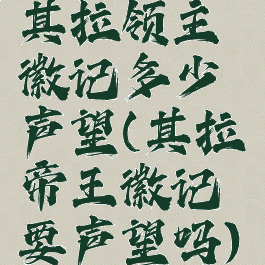 其拉领主
徽记多少
声望(其拉
帝王徽记
要声望吗)